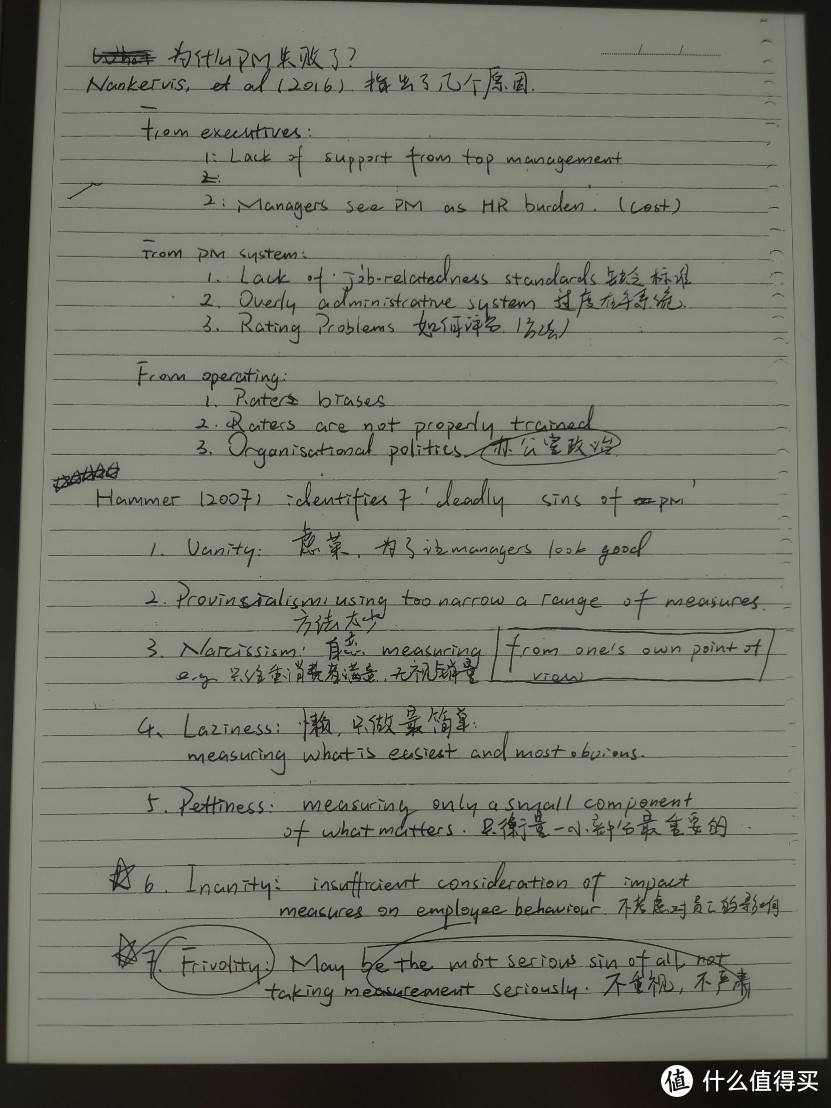 为什么PM失败了?
Nankervis, et al (2016) 指出了几个原因.
From executives:
1: Lack of support from top management
2:
2: Managers see PM as HR burden. (cost)
From PM system:
1. Lack of job-relatedness standards 缺乏标准
2. Overly administrative system 过度 系统
3. Rating Problems 如何评 (方法)
From operating:
1. Raters biases
2. Raters are not properly trained
3. Organisational politics. 办公室政治
Hammer (2007) identifies 7 'deadly sins of PM'
1. Vanity: 虚荣, 为了让managers look good
2. Provinsialism: using too narrow a range of measures.
方法太少
3. Narcissism: 自恋 measuring from one's own point of view
e.g. 只注重消费者满意, 无视销量
4. Laziness: 懒, 只做最简单:
measuring what is easiest and most obvious.
5. Pettiness: measuring only a small component
of what matters. 只衡量一小部分最重要的
☆ 6. Inanity: insufficient consideration of impact
measures on employee behaviour. 不考虑对员工的影响
☆ 7. Frivolity: May be the most serious sin of all, not
taking measurement seriously. 不重视, 不严肃
值 什么值得买